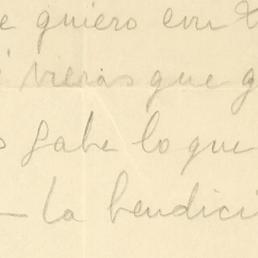 e quiero con
vieras que g
s sabe lo que
— la bendici